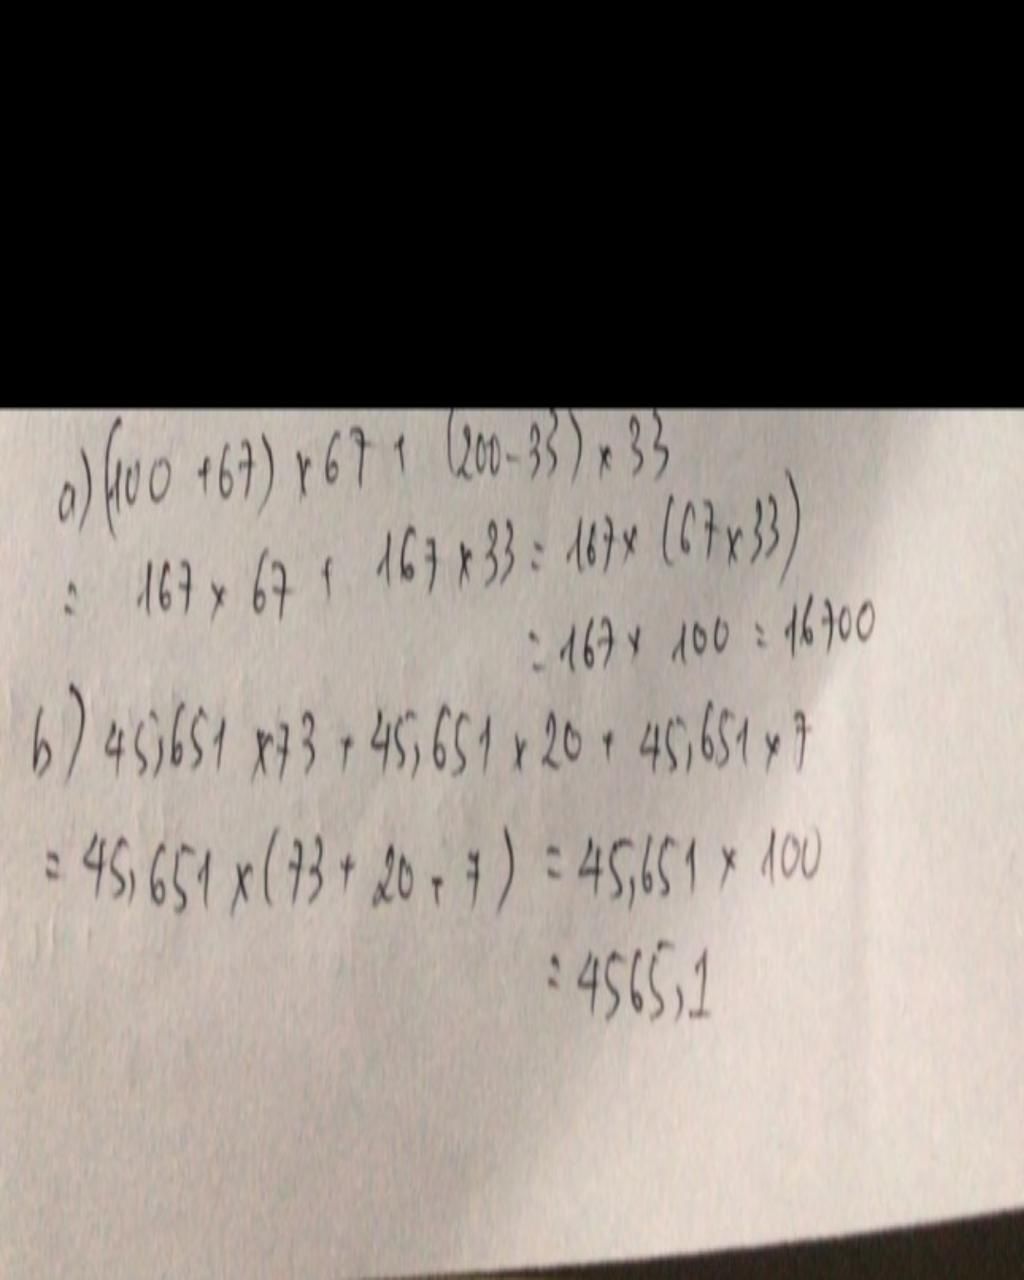 a) (100 + 67) x 67 + (200 - 33) x 33
= 167 x 67 + 167 x 33 = 167 x (67 x 33)
= 167 x 100 = 16700
b) 45,651 x 73 + 45,651 x 20 + 45,651 x 7
= 45,651 x (73 + 20 + 7) = 45,651 x 100
= 4565,1